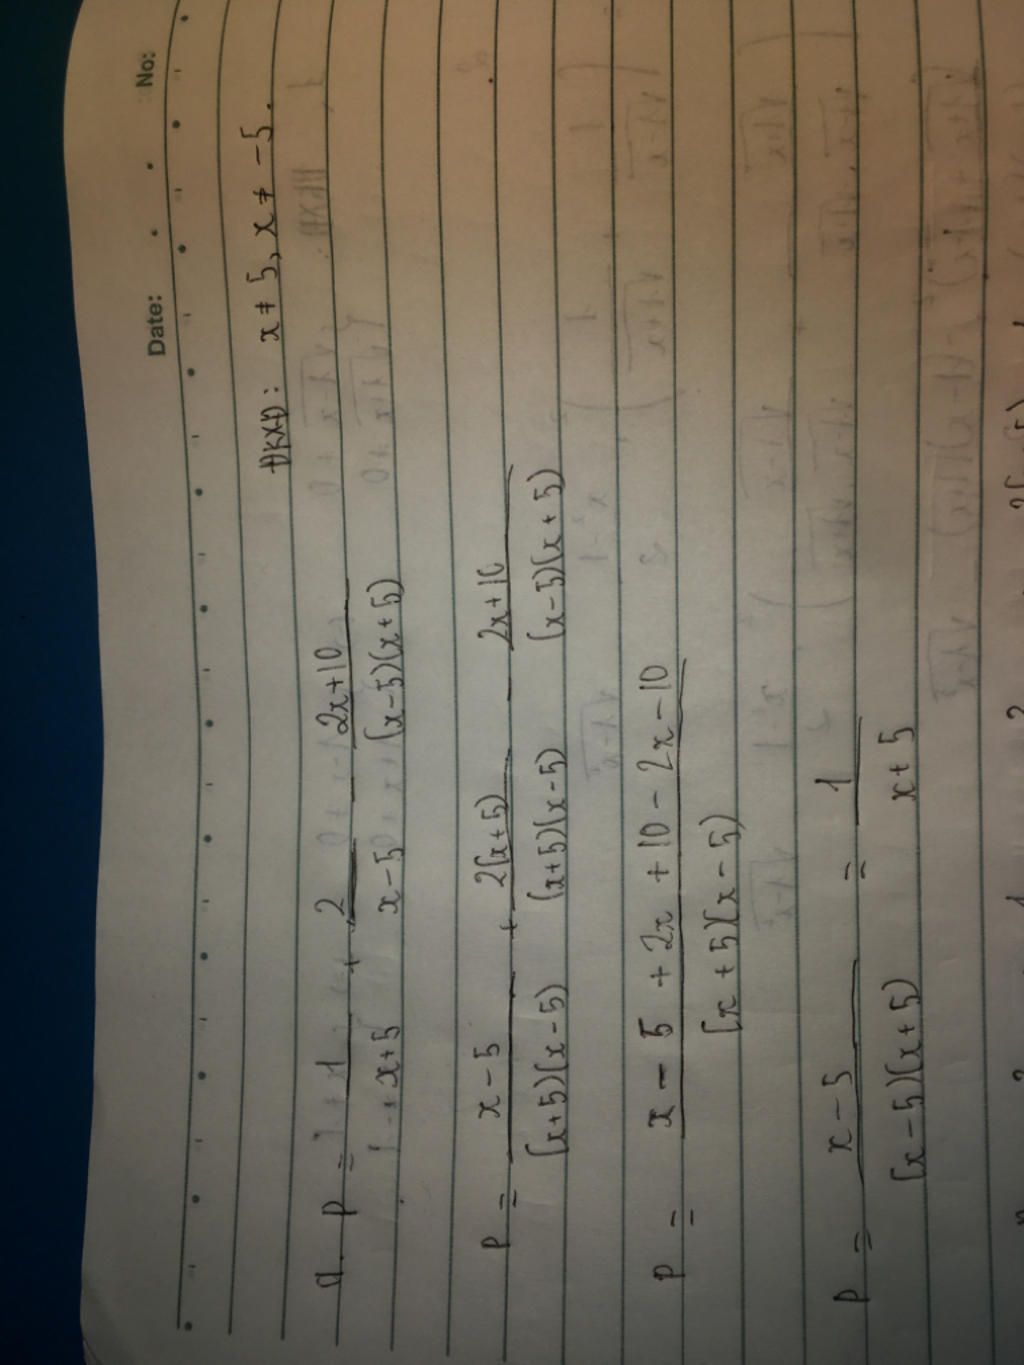 Date: No:
ĐKXĐ: x ≠ 5, x ≠ -5.
a. P = 1/(x+5) + 2/(x-5) - (2x+10)/((x-5)(x+5))
P = (x-5)/((x+5)(x-5)) + 2(x+5)/((x+5)(x-5)) - (2x+10)/((x-5)(x+5))
P = (x-5+2x+10-2x-10)/((x+5)(x-5))
P = (x-5)/((x-5)(x+5)) = 1/(x+5)